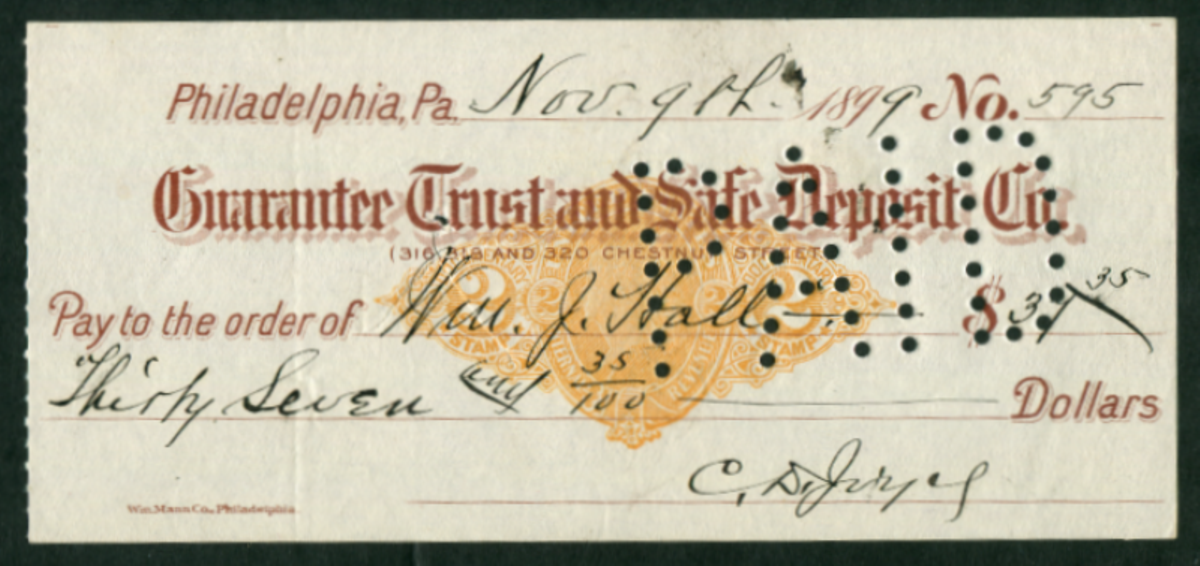 Philadelphia, Pa. Nov. 9th. 1899 No. 595
Guarantee Trust and Safe Deposit Co.
(316, 318 AND 320 CHESTNUT STREET)
PAID
Pay to the order of Wm. J. Hall $ 37 35
2 2 2 2
STAMP STAMP
Thirty Seven and 35/100 Dollars
C. D.
Wm. Mann Co., Philadelphia.